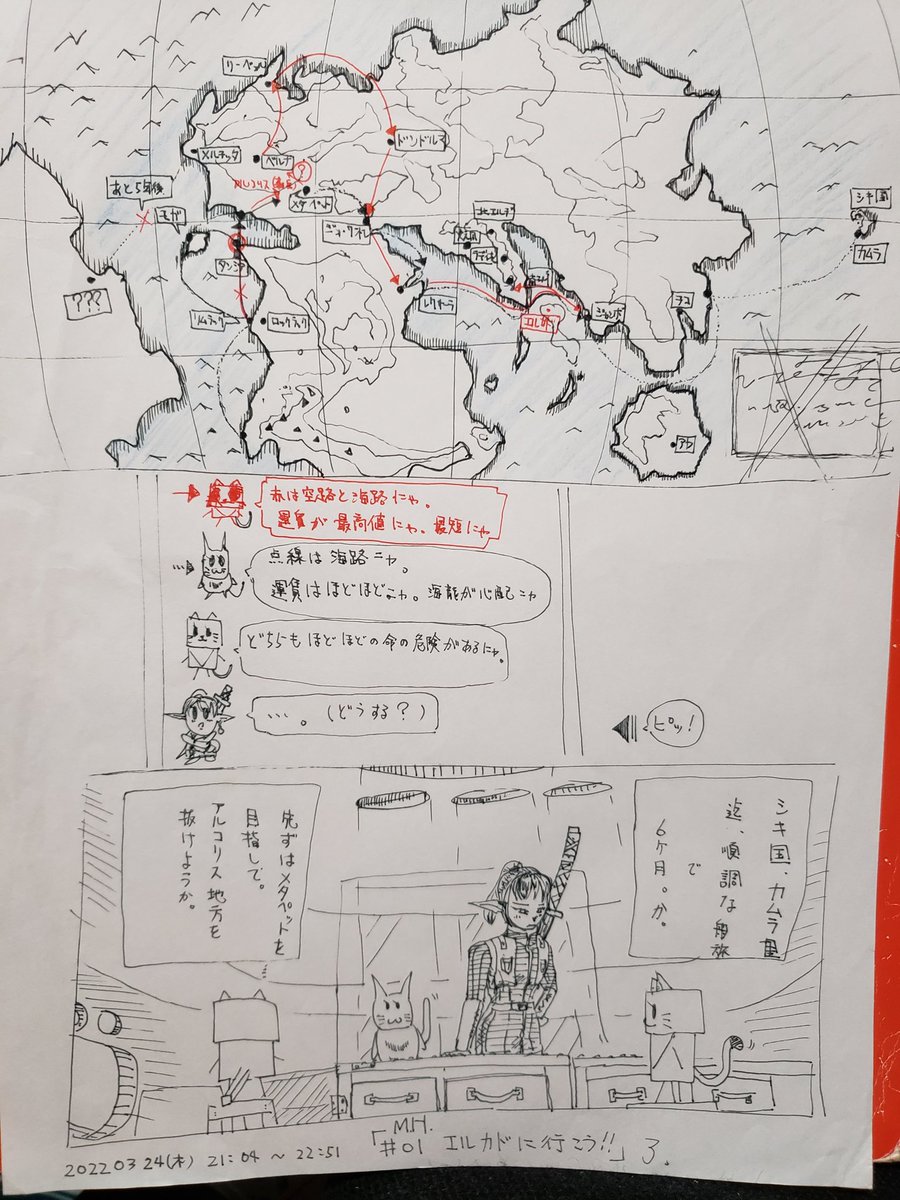 リーベル
メルチッタ
ベルナ
ドンドルマ
?
あと5年後
モガ
メタペット
ジォ・クルーク
タンジア
???
ロックラック
レクサーラ
北エルデ
エルガド
ジャンボ
チコ
アヤ
シキ国
カムラ
赤は空路と海路にゃ。
運賃が最高値にゃ。最短にゃ
点線は海路ニャ。
運賃はほどほどニャ。海龍が心配ニャ
どちらもほどほどの命の危険があるにゃ。
…。(どうする?)
ピッ!
シキ国、カムラ里
迄、順調な船旅
で
6ヶ月。か。
先ずはメタペットを
目指して。
アルコリス地方を
抜けようか。
M.H.
「#01 エルガドに行こう!!」3.
20220324(木) 21:04 ~ 22:51